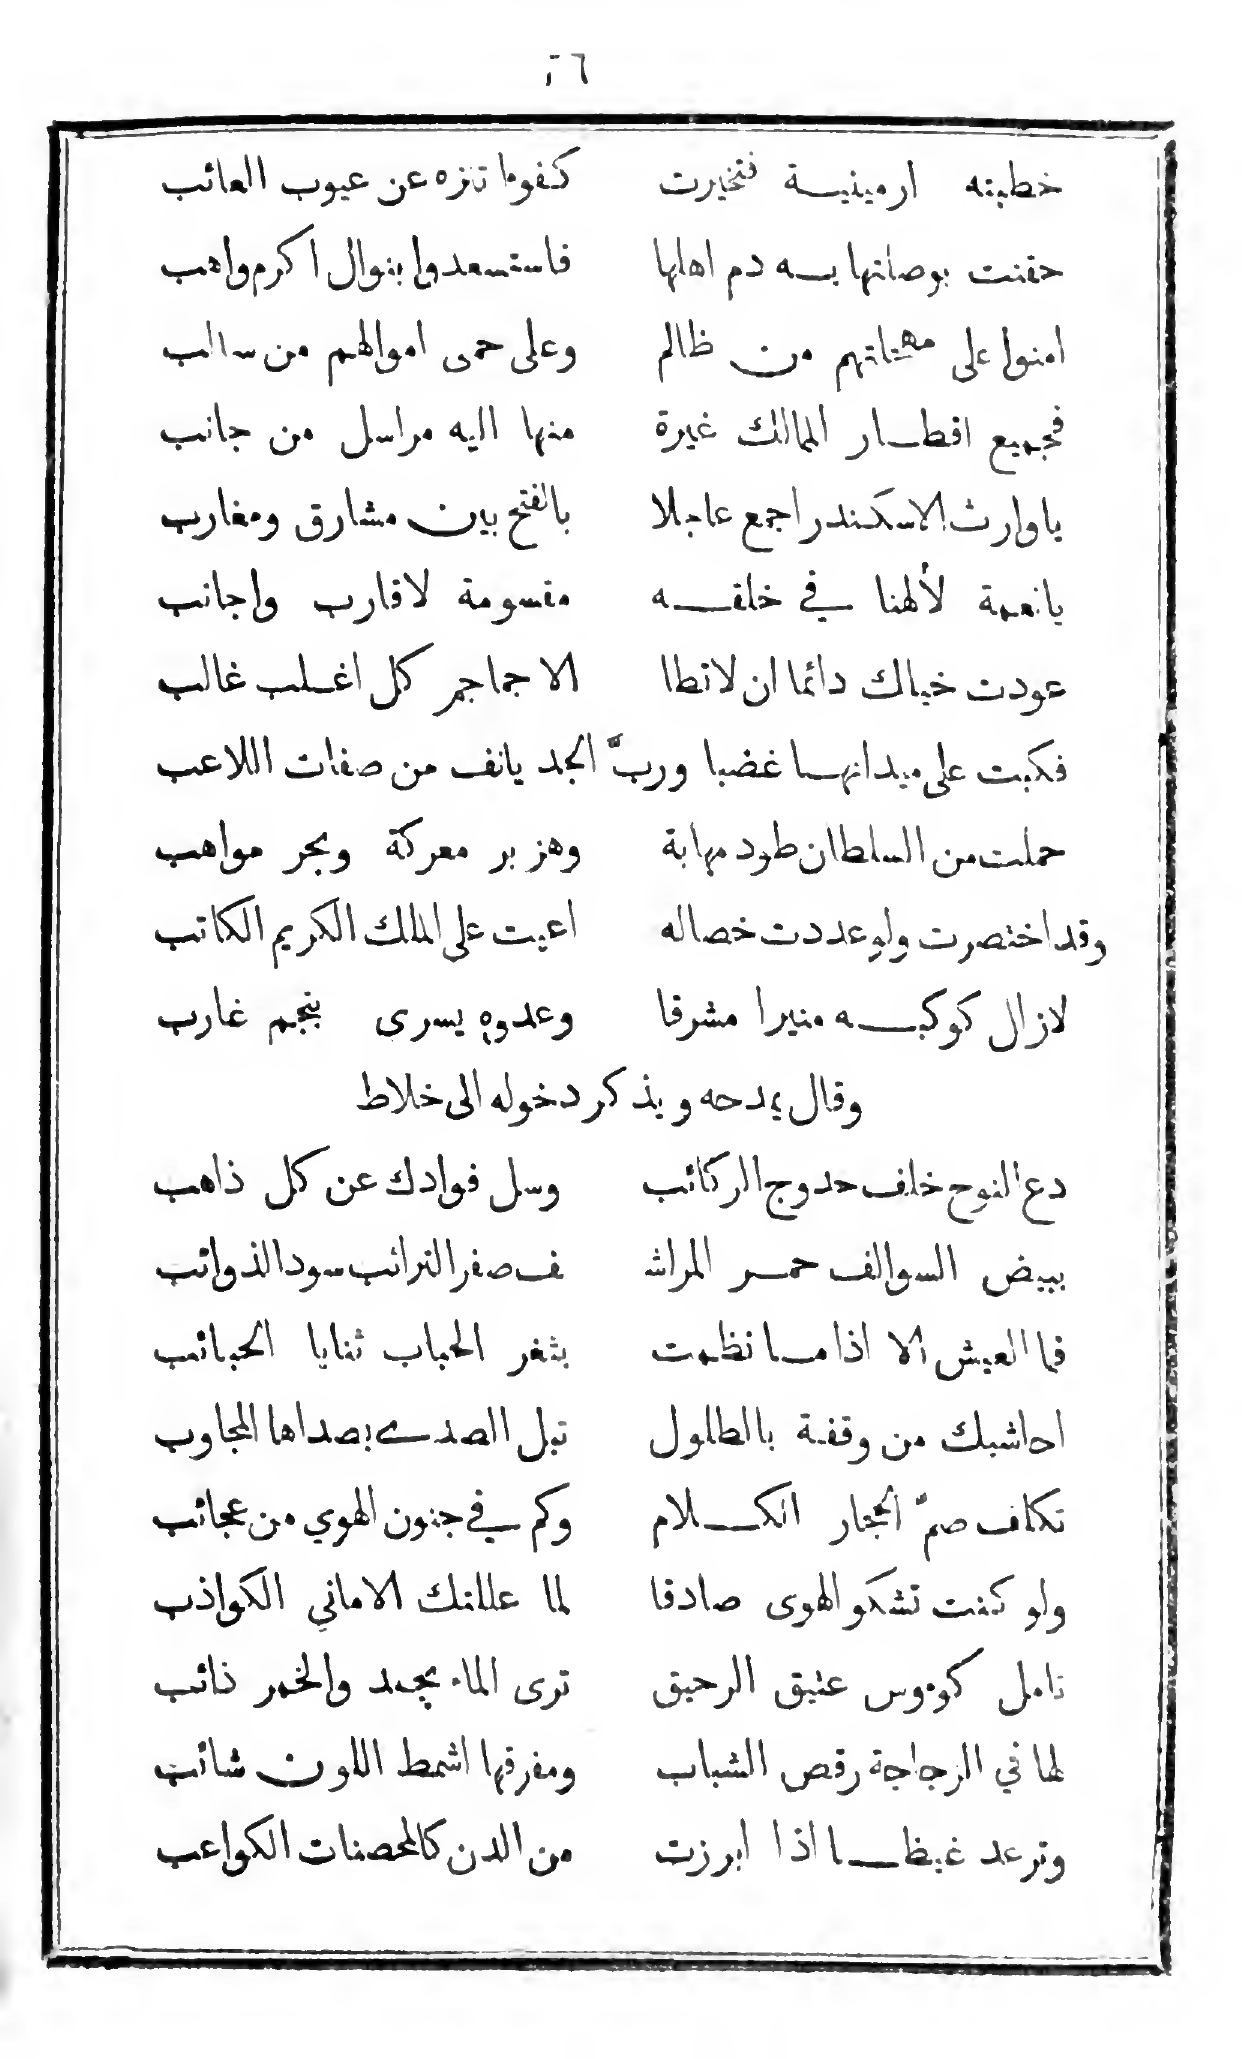 ٢٦
خطبته ارمينية فتخيرت كفوءا تنزه عن عيوب العائب
حقنت بوصلتها به دم اهلها فاستسعدوا بنوال اكرم واهب
امنوا على مهجاتهم من ظالم وعلى حمى اموالهم من سالب
فجميع اقطار الممالك غيرة منها اليه مراسل من جانب
ياوارث الاسكندر اجمع عاجلا بالفتح بين مشارق ومغارب
يانعمة لألهنا في خلقه مقسومة لاقارب واجانب
عودت خيالك دائما ان لاتطا الا جماجم كل اغلب غالب
فكبت على ميدانها غضبا ورب المجد يانف من صفات اللاعب
حملت من السلطان طود مهابة وهزبر معركة وبحر مواهب
وقد اختصرت ولو عددت خصاله اعيت على الملك الكريم الكاتب
لازال كوكبه منيرا مشرقا وعدوه يسرى بنجم غارب
وقال يمدحه ويذكر دخوله الى خلاط
دع النوح خلف حدوج الركائب وسل فوادك عن كل ذاهب
ببيض السوالف حمر المراشـ ـف صفر الترائب سود الذوائب
فما العيش الا اذا ما نظمت بثغر الحباب ثنايا الحبائب
احاشيك من وقفة بالطلول تبل الصدى بصداها المجاوب
تكلف صمّ الحجار الكلام وكم في جنون الهوي من عجائب
ولو كنت تشكو الهوى صادقا لما عللتك الاماني الكواذب
تامل كوءوس عتيق الرحيق ترى الماء يجمد والخمر ذائب
لها في الزجاجة رقص الشباب ومفرقها اشمط اللون شائب
وترعد غيظا اذا ابرزت من الدن كالمحصنات الكواعب